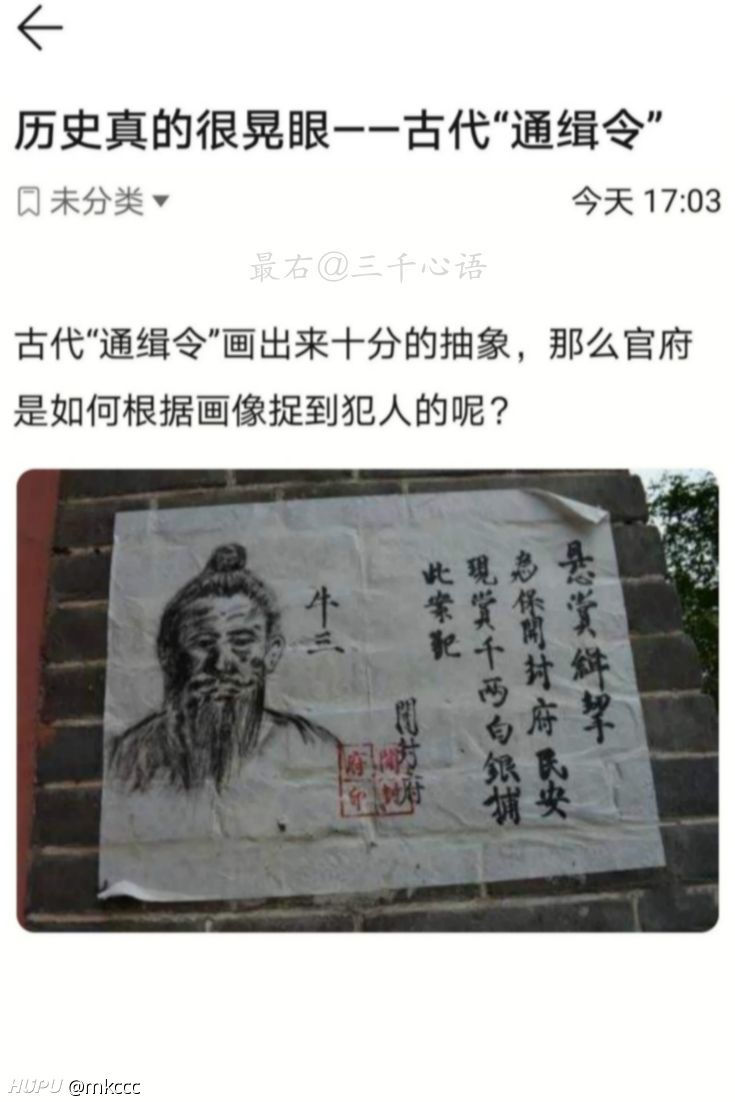 历史真的很晃眼——古代“通缉令”
未分类
今天 17:03
最右@三千心语
古代“通缉令”画出来十分的抽象，那么官府
是如何根据画像捉到犯人的呢？
悬赏缉拏
为保開封府民安
現賞千两白銀捕
此案犯
開封府
牛三
開封
府印
HUPU @mkccc